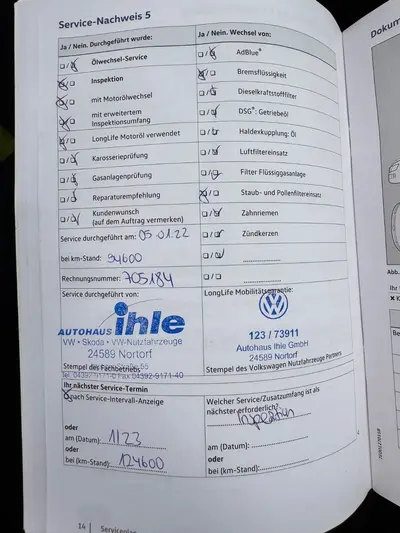 Service-Nachweis 5
Ja / Nein. Durchgeführt wurde:
Ölwechsel-Service
Inspektion
mit Motorölwechsel
mit erweitertem
Inspektionsumfang
LongLife Motoröl verwendet
Karosserieprüfung
Gasanlagenprüfung
Reparaturempfehlung
Kundenwunsch
(auf dem Auftrag vermerken)
Service durchgeführt am: 05.01.22
bei km-Stand: 94600
Rechnungsnummer: 705184
Ja / Nein. Wechsel von:
AdBlue®
Bremsflüssigkeit
Dieselkraftstofffilter
DSG®: Getriebeöl
Haldexkupplung: Öl
Luftfiltereinsatz
Filter Flüssiggasanlage
Staub- und Pollenfiltereinsatz
Zahnriemen
Zündkerzen
Service durchgeführt von:
AUTOHAUS ihle
VW • Skoda • VW-Nutzfahrzeuge
24589 Nortorf
Stempel des Fachbetriebs 55
Tel. 04392-9171-0 Fax 04392-9171-40
LongLife Mobilitätsgarantie:
123 / 73911
Autohaus Ihle GmbH
24589 Nortorf
Stempel des Volkswagen Nutzfahrzeuge Partners
Ihr nächster Service-Termin
nach Service-Intervall-Anzeige
oder
am (Datum): 1123
oder
bei (km-Stand): 124600
Welcher Service/Zusatzumfang ist als
nächster erforderlich?
Inspektion
am (Datum):
oder
bei (km-Stand):
14 Serviceplan
Dokum
Abb.
Ihr